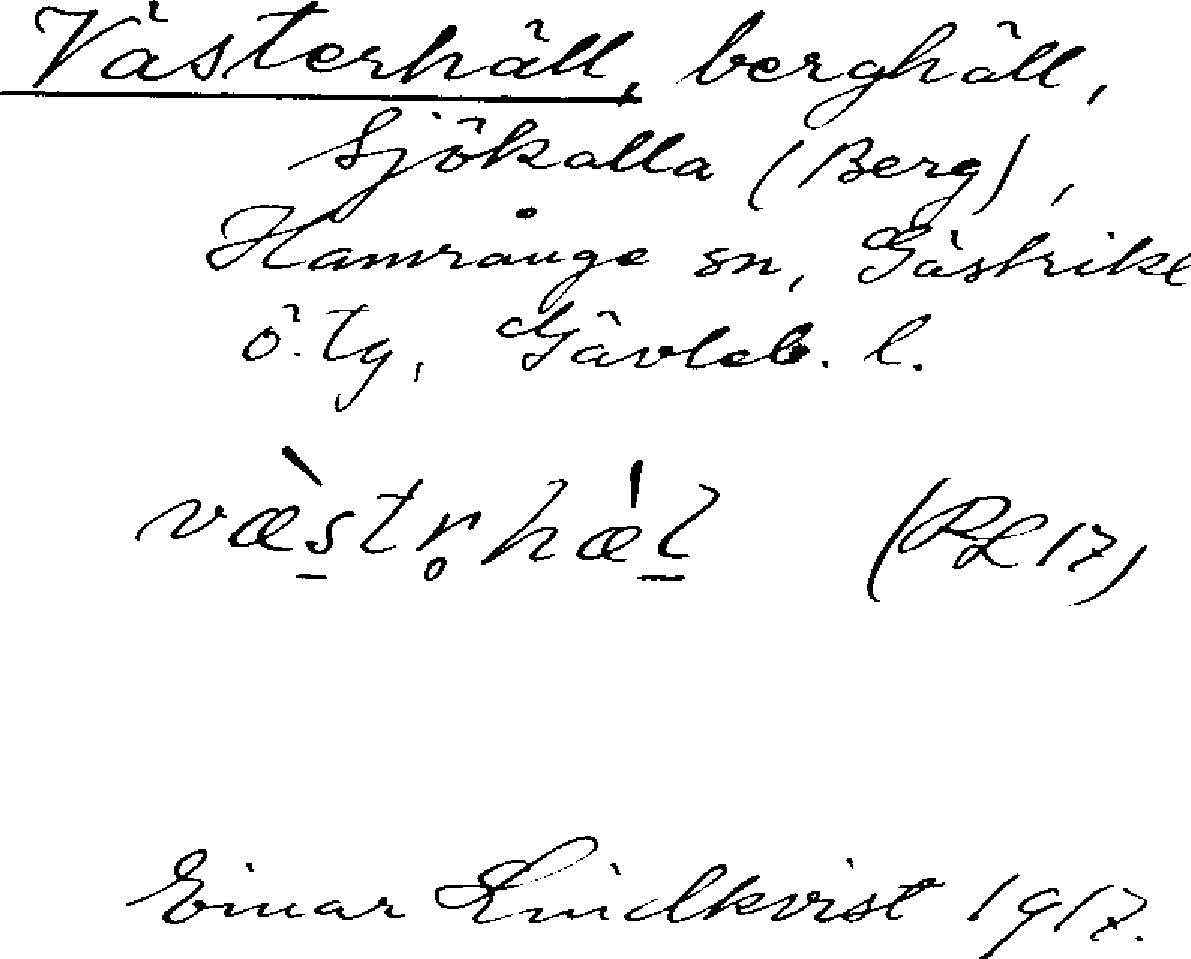 Västerhäll, berghäll,
Sjökalla (Berg),
Hamrånge sn, Gästrikl
ö. tg, Gävleb. l.
væ̀s̱tr̥hæ̍ḻ (RL 17)
Einar Lindkvist 1917.